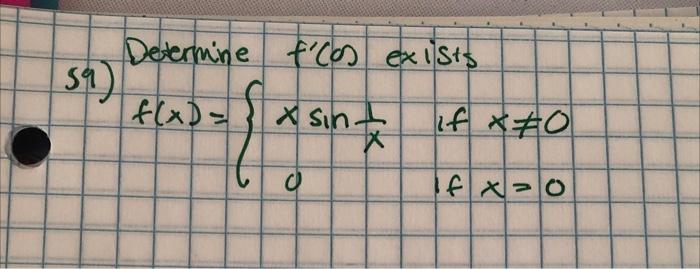 Determine f'(0) exists
59)
f(x) = { x sin 1/x if x ≠ 0
0 if x = 0